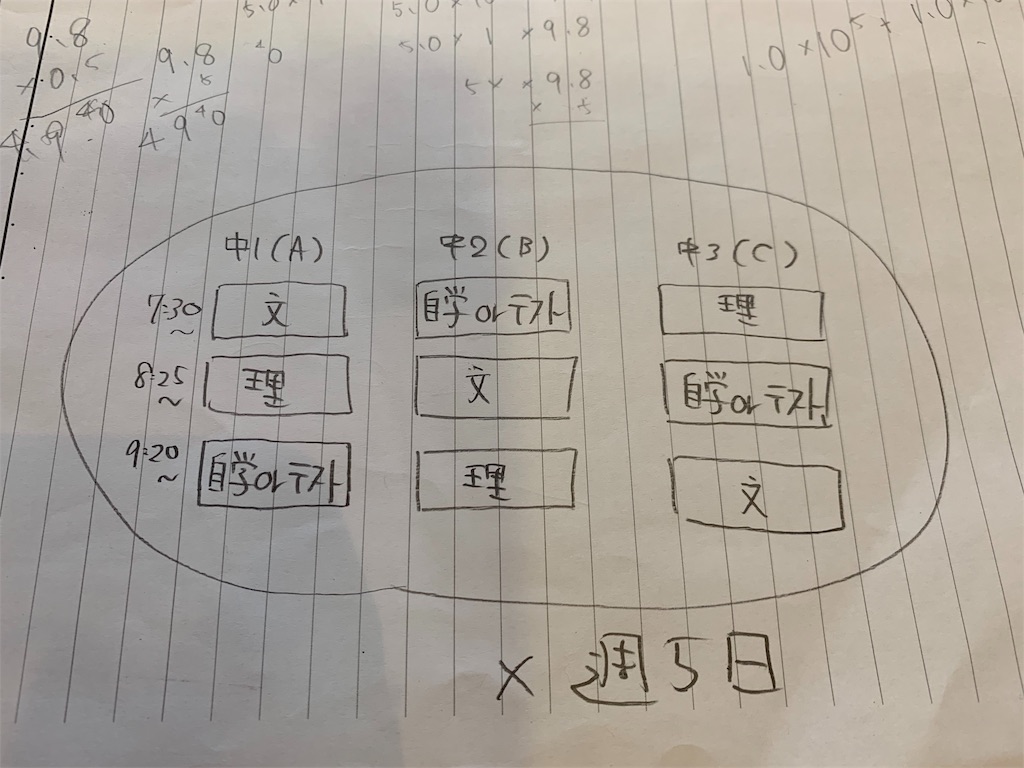 9.8
×0.5
4.9
9.8
× 5
4940
40
5.0×1×9.8
× 9.8
× 5
1.0×10⁵+1.0×
中1(A) 中2(B) 中3(C)
7:30~ 文 自学orテスト 理
8:25~ 理 文 自学orテスト
9:20~ 自学orテスト 理 文
×週5日